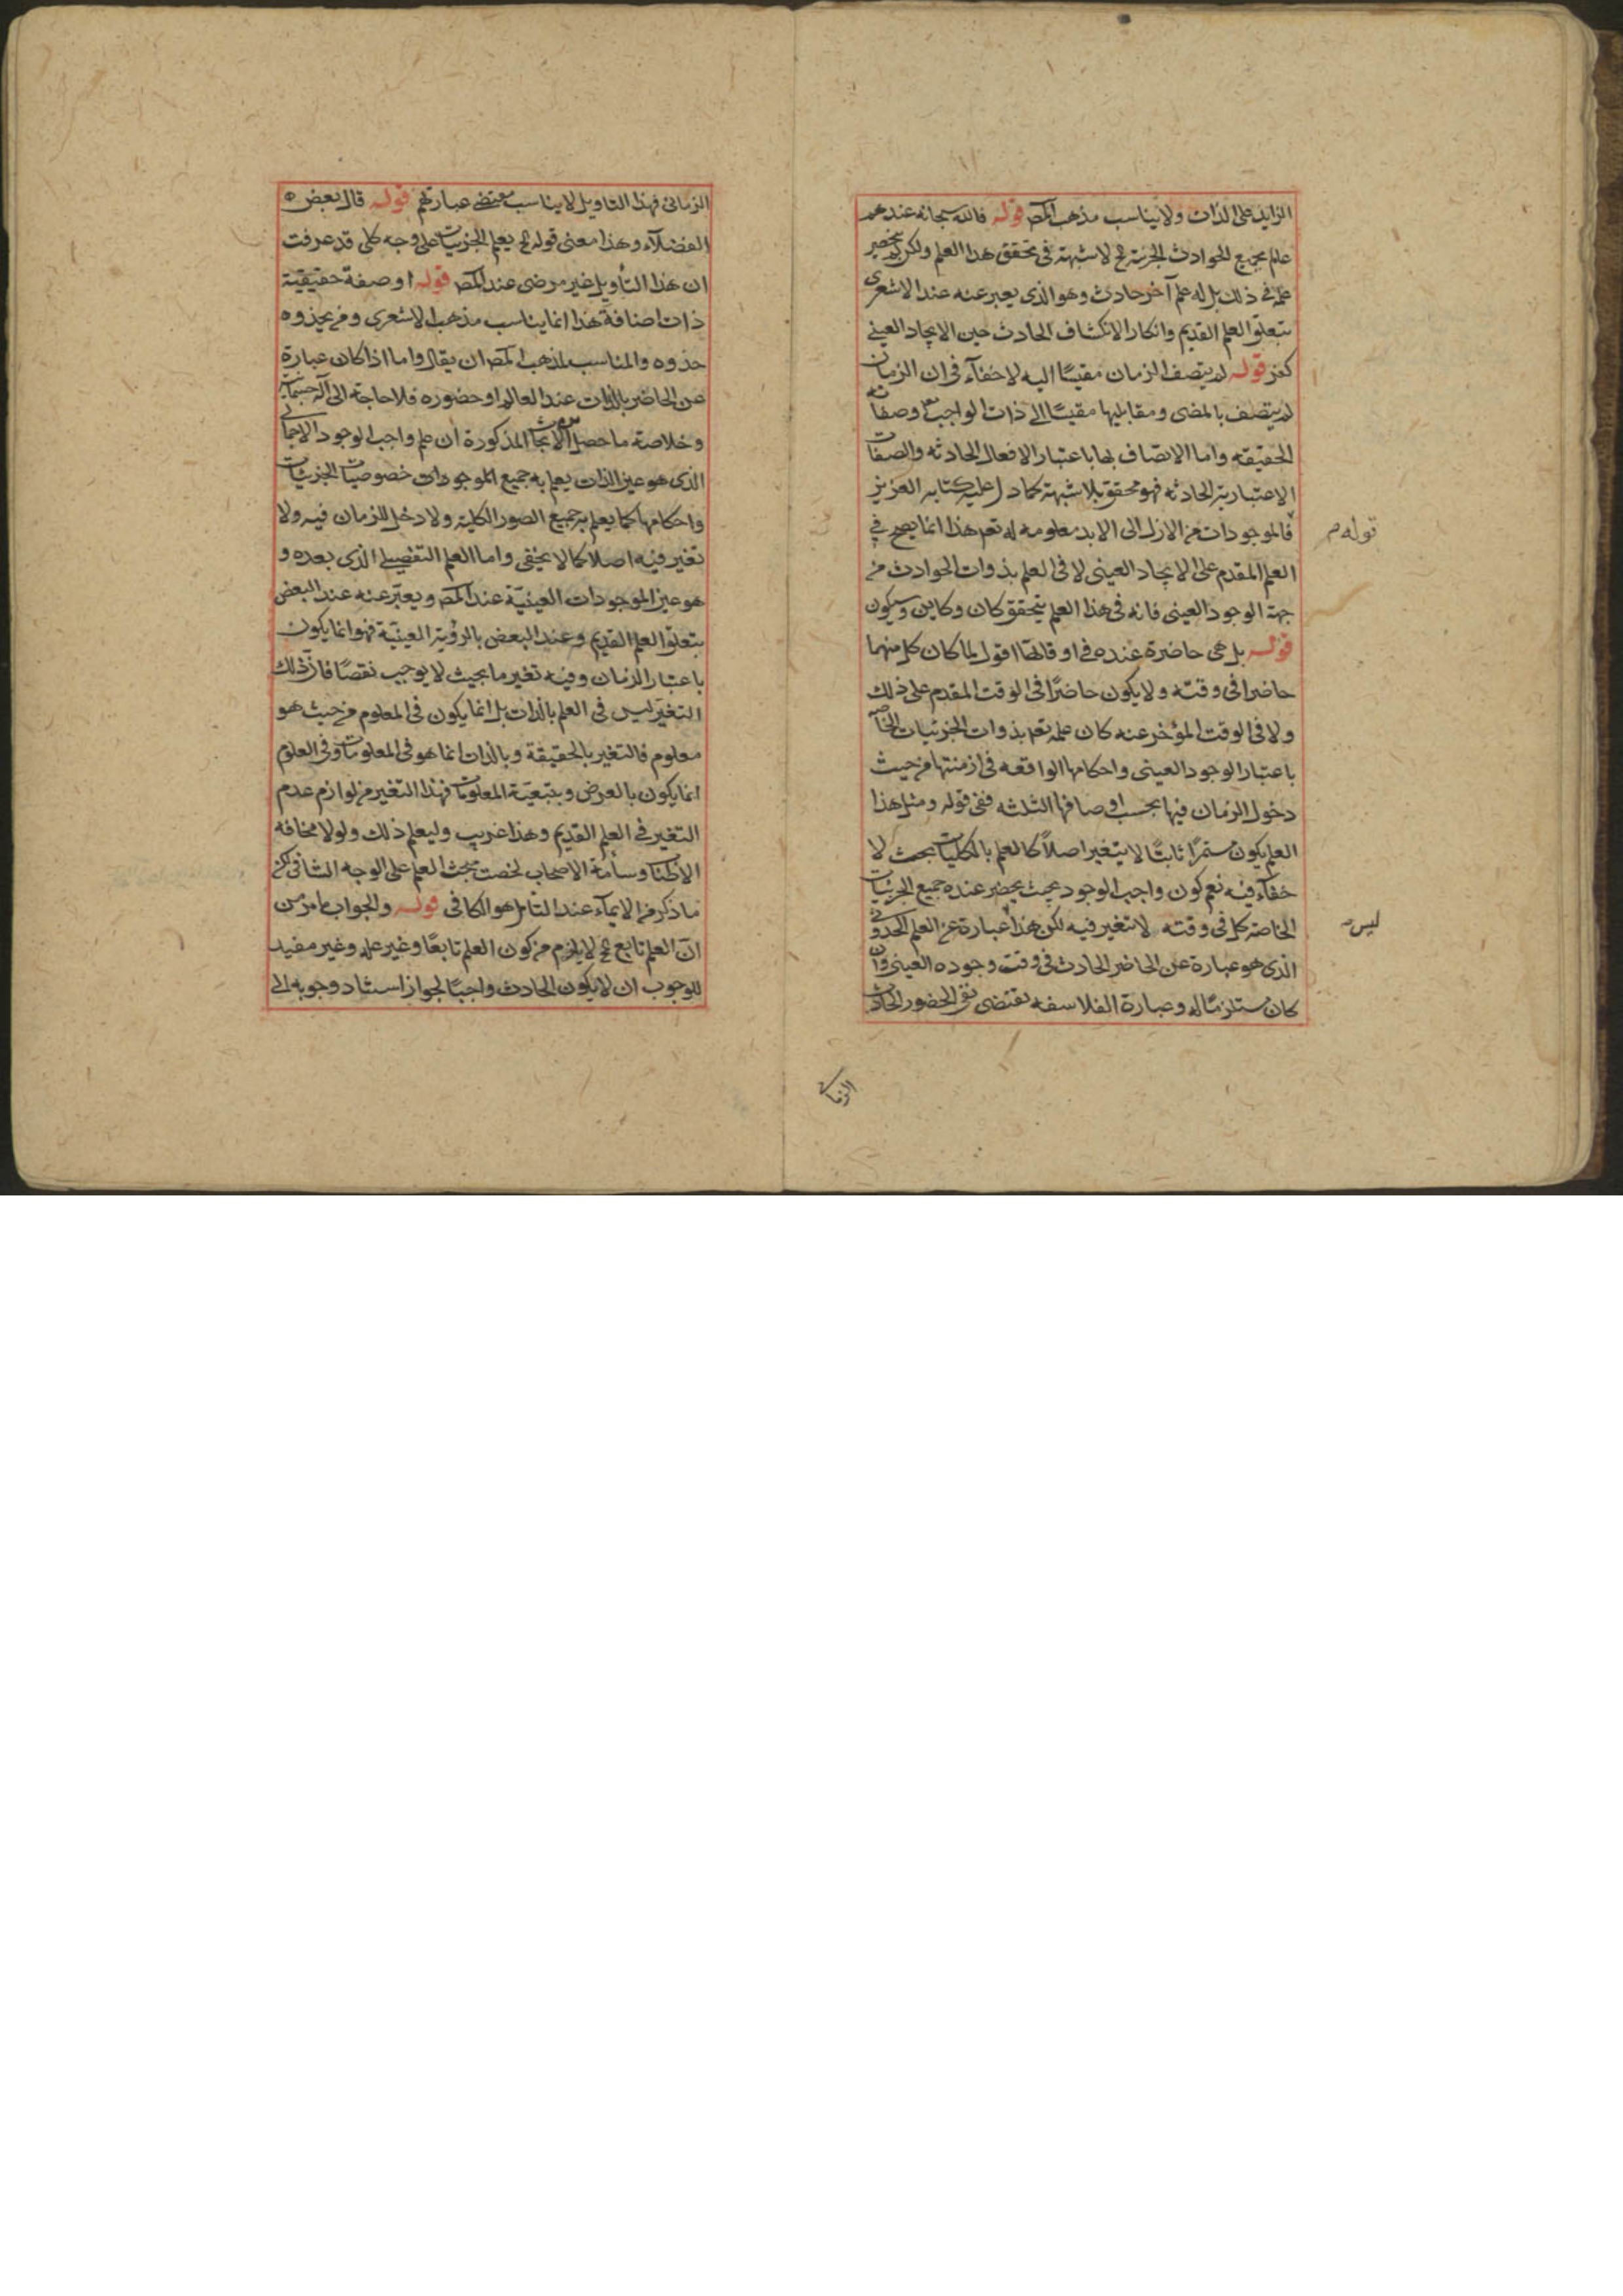 الزايد على الذات ولا يناسب مذهب المصـ قوله فالله سبحانه عندهم
علم بجميع الحوادث الجزئية ح لا شبهة فى تحقق هذا العلم ولكن لم ينحصر
علمه فى ذلك بل له علم آخر حادث وهو الذى يعبر عنه عند الاشعرى
بتعلق العلم القديم وانكار الانكشاف الحادث حين الايجاد العينى
كفر قوله لم يتصف الزمان مقيسًا اليه لا خفآء فى ان الزمان
لم يتصف بالمضى ومقابليها مقيسًا الى ذات الواجب وصفاته
الحقيقه واما الاتصاف بها باعتبار الافعال الحادثه والصفات
الاعتبارية الحادثه فهو محقق بلا شبهة كما دل عليه كتابه العزيز
قوله م
فالموجودات من الازل الى الابد معلومه له تعم هذا انما يصح فى
العلم المقدم على الايجاد العينى لا فى العلم بذوات الحوادث من
جهة الوجود العينى فانه فى هذا العلم يتحقق كان وكاين وسيكون
قوله بل هى حاضرة عنده فى اوقاتها اقول لما كان كل منهما
حاضرا فى وقته ولا يكون حاضرًا فى الوقت المقدم على ذلك
ولا فى الوقت المؤخر عنه كان علمه تعم بذوات الجزئيات الخاصه
باعتبار الوجود العينى واحكامها الواقعه فى ازمنتها من حيث
دخول الزمان فيها بحسب اوصافها الثلثه ففى قوله ومثل هذا
العلم يكون مستمرًا ثابتًا لا يتغير اصلاً كالعلم بالكليات بحث لا
خفآء فيه نعم كون واجب الوجود بحيث يحضر عنده جميع الجزئيات
الخاصة كل فى وقته لا تغير فيه لكن هذا عبارة عن العلم الحدوثى
ليس
الذى هو عبارة عن الحاضر الحادث فى وقت وجوده العينى وان
كان مستلزمًا له وعبارة الفلاسفه تقتضى نفى الحضور الحادث
الزمانى
الزمانى فهذا التاويل لا يناسب مقتضى عبارتهم قوله قال بعض
الفضلآء وهذا معنى قوله ح يعلم الجزئيات على وجه كلى قد عرفت
ان هذا التأويل غير مرضى عند المصـ قوله او صفة حقيقية
ذات اضافة هذا انما يناسب مذهب الاشعرى ومن يحذوه
حذوه والمناسب لمذهب المصـ ان يقال واما اذا كان عبارة
عن الحاضر بالذات عند العالم او حضوره فلا حاجة الى آلة جسمانية
وخلاصة ما حصل من الابحاث المذكورة ان علم واجب الوجود الاجمالى
الذى هو عين الذات يعلم به جميع الموجودات خصوصيات الجزئيات
واحكامها كما يعلم به جميع الصور الكلية ولا دخل للزمان فيه ولا
تغير فيه اصلا كما لا يخفى واما العلم التفصيلى الذى بعده و
هو عين الموجودات العينيّة عند المصـ ويعبّر عنه عند البعض
بتعلق العلم القديم وعند البعض بالرؤية العينيّة فهو انما يكون
باعتبار الزمان وفيه تغير ما بحيث لا يوجب نقصًا فان ذلك
التغيّر ليس فى العلم بالذات بل انما يكون فى المعلوم من حيث هو
معلوم فالتغير بالحقيقة وبالذات انما هو فى المعلومات وفى العلوم
انما يكون بالعرض وبتبعيّة المعلومات فهذا التغير من لوازم عدم
التغير فى العلم القديم وهذا غريب وليعلم ذلك ولولا مخافه
الاطناب وسأمة الاصحاب لخصت مبحث العلم على الوجه الشافى لكن
ما ذكر من الايمآء عند التامل هو الكافى قوله والجواب ما مر من
انّ العلم تابع ح لا يلزم من كون العلم تابعًا وغير علة وغير مفيد
للوجوب ان لا يكون الحادث واجبًا لجواز استناد وجوبه الى